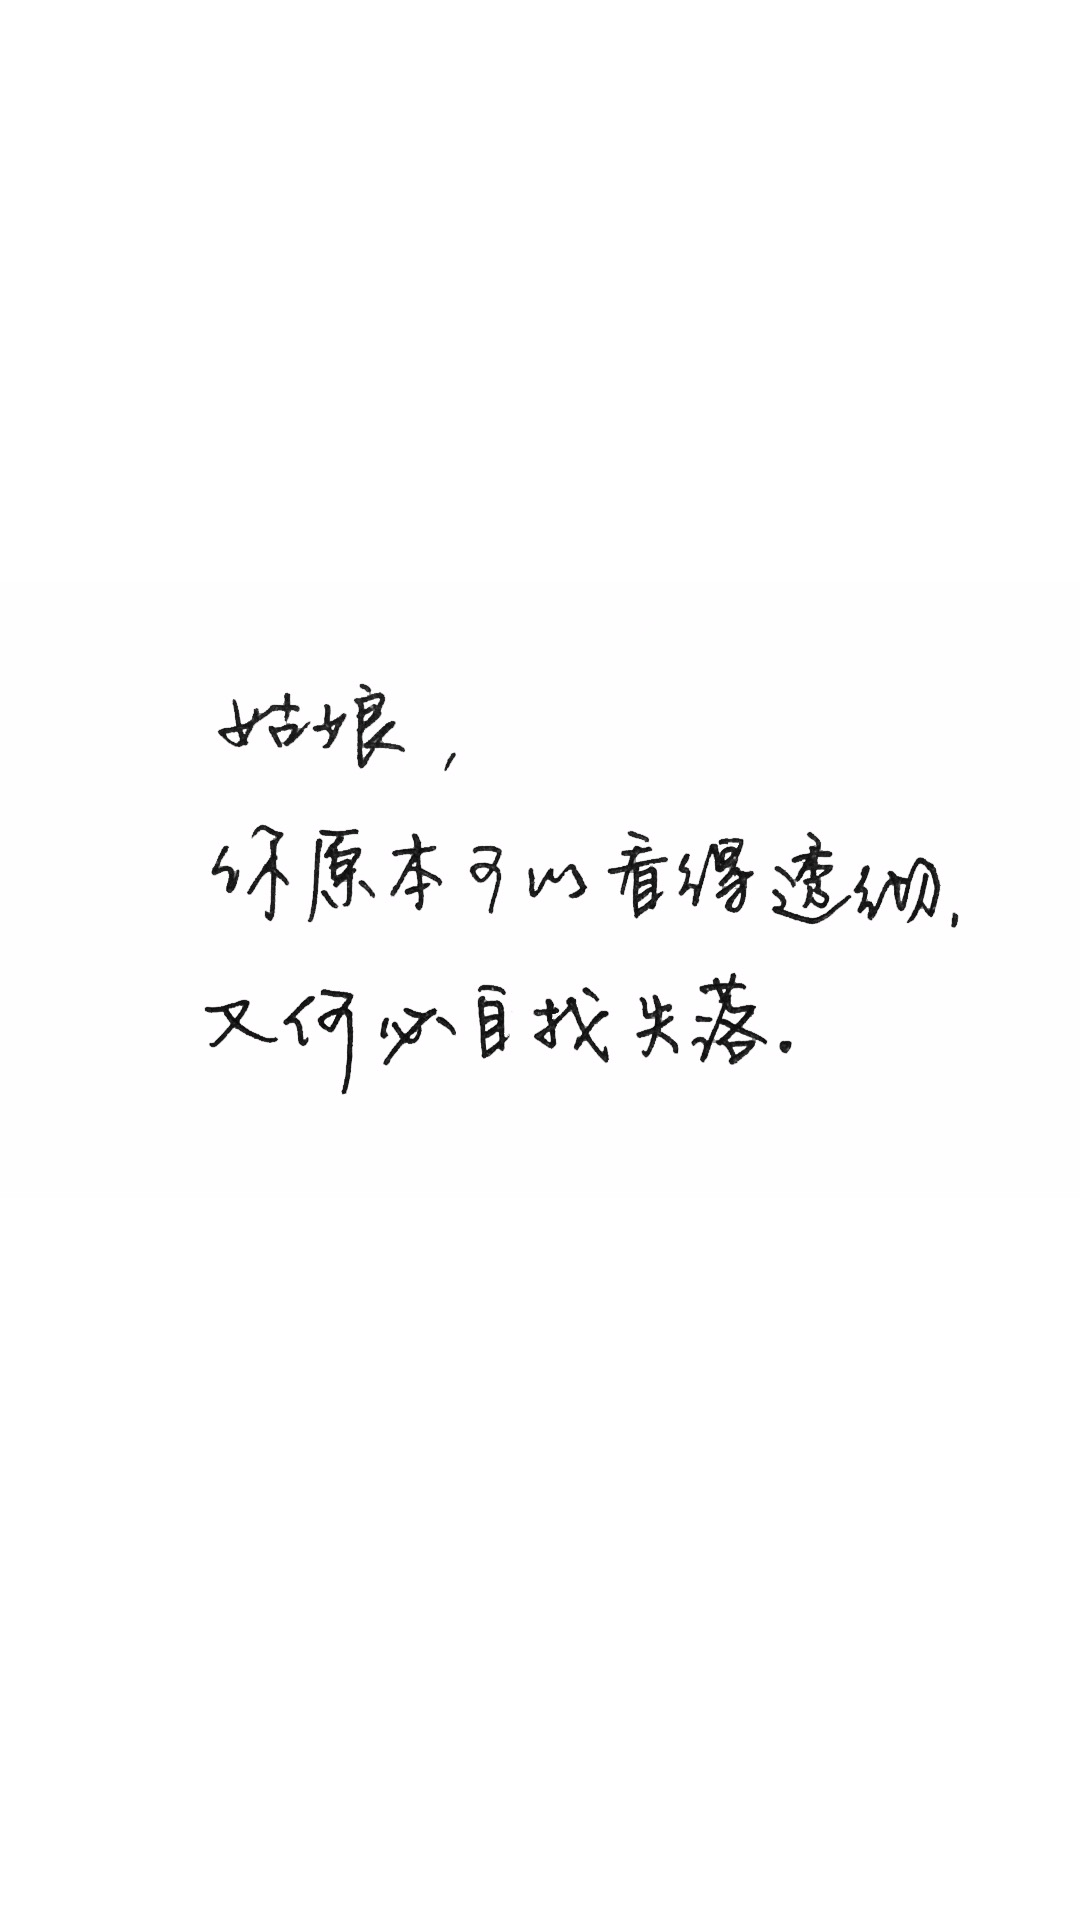 姑娘，
你原本可以看得透彻，
又何必自找失落.